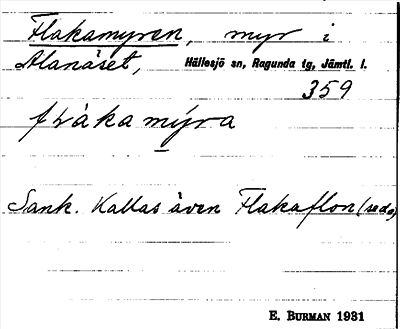 Flakamyren, myr i
Alanäset, Hällesjö sn, Ragunda tg, Jämtl. l.
359
Sank. Kallas även Flakaflon (se d.o)
E. BURMAN 1931